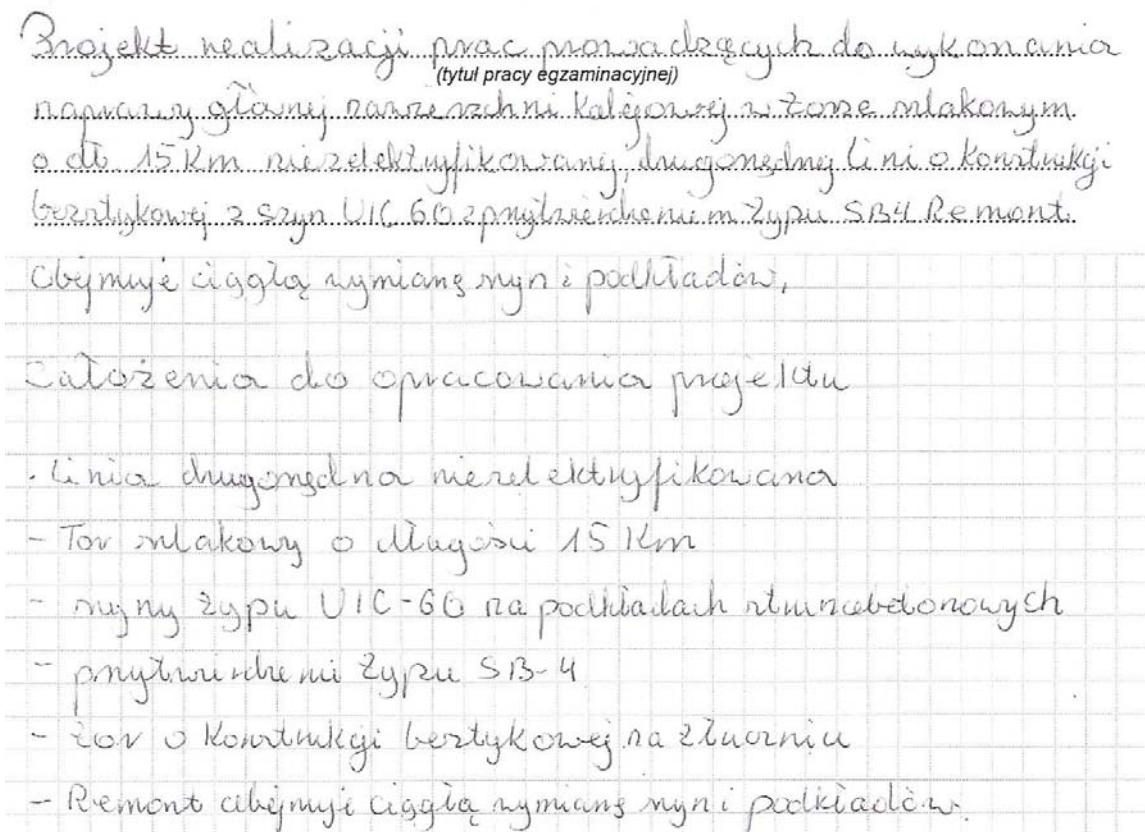 Projekt realizacji prac prowadzących do wykonania
(tytuł pracy egzaminacyjnej)
naprawy głównej nawierzchni kolejowej w torze szlakowym
o dł. 15 km niezelektryfikowanej, drugorzędnej lini o konstrukcji
bezstykowej z szyn UIC 60 z przytwierdzeniem typu SB4 Remont.
obejmuje ciągłą wymianę szyn i podkładów,
Założenia do opracowania projektu
- Linia drugorzędna niezelektryfikowana
- Tor szlakowy o długości 15 km
- szyny typu UIC-60 na podkładach strunobetonowych
- przytwierdzenie typu SB-4
- tor o konstrukcji bezstykowej na tłuczniu
- Remont obejmuje ciągłą wymianę szyn i podkładów.